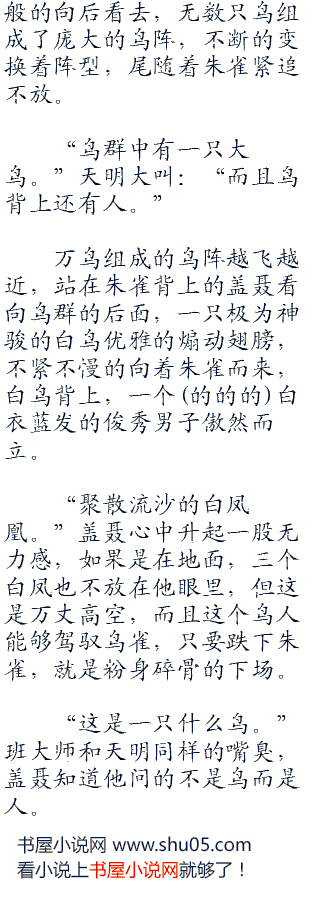 般的向后看去，无数只鸟组
成了庞大的鸟阵，不断的变
换着阵型，尾随着朱雀紧追
不放。
“鸟群中有一只大
鸟。”天明大叫：“而且鸟
背上还有人。”
万鸟组成的鸟阵越飞越
近，站在朱雀背上的盖聂看
向鸟群的后面，一只极为神
骏的白鸟优雅的煽动翅膀，
不紧不慢的向着朱雀而来，
白鸟背上，一个(的的的)白
衣蓝发的俊秀男子傲然而
立。
“聚散流沙的白凤
凰。”盖聂心中升起一股无
力感，如果是在地面，三个
白凤也不放在他眼里，但这
是万丈高空，而且这个鸟人
能够驾驭鸟雀，只要跌下朱
雀，就是粉身碎骨的下场。
“这是一只什么鸟。”
班大师和天明同样的嘴臭，
盖聂知道他问的不是鸟而是
人。
书屋小说网 www.shu05.com
看小说上书屋小说网就够了！